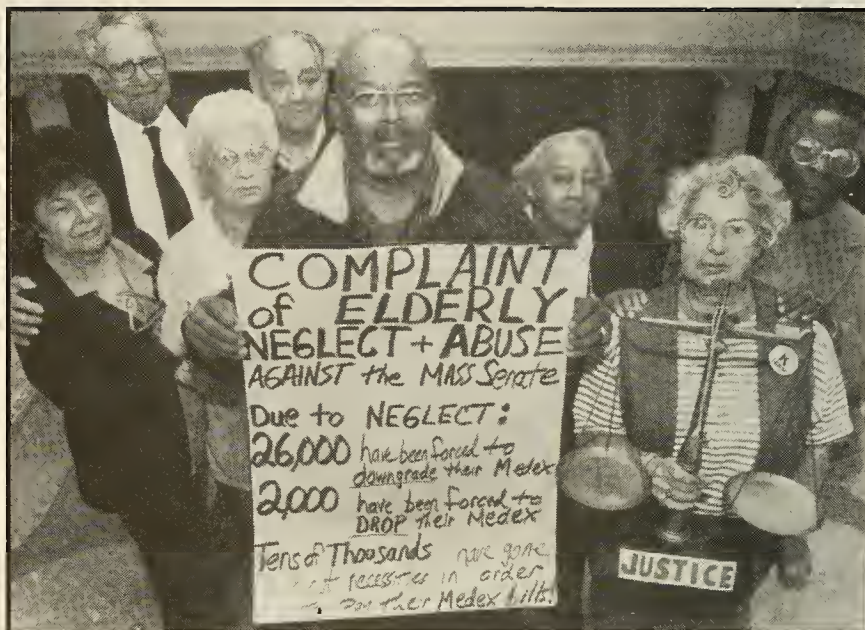 COMPLAINT
of ELDERLY
NEGLECT + ABUSE
AGAINST the MASS Senate
Due to NEGLECT:
26,000 have been forced to
downgrade their Medex
2,000 have been forced to
DROP their Medex
Tens of Thoosands have gone
in order
their Medex bills!
JUSTICE